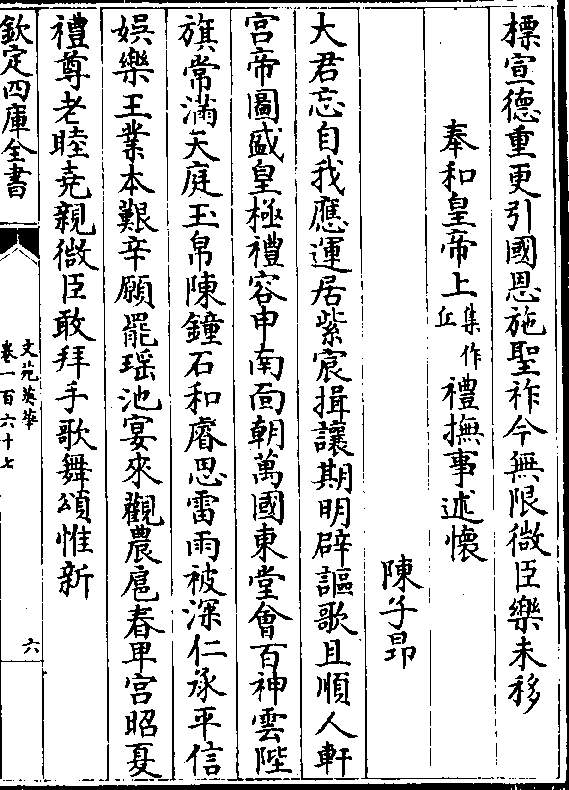 標宣德重更引國恩施聖祚今無限微臣樂未移
奉和皇帝上集作丘禮撫事述懷
陳子昂
大君忘自我應運居紫宸揖讓期明辟謳歌且順人軒
宮帝圖盛皇極禮容申南面朝萬國東堂會百神雲陛
旗常滿天庭玉帛陳鐘石和睿思雷雨被深仁承平信
娛樂王業本艱辛願罷瑶池宴來觀農扈春卑宮昭夏
禮尊老睦堯親微臣敢拜手歌舞頌惟新
欽定四庫全書
文苑英華
卷一百六十七
六